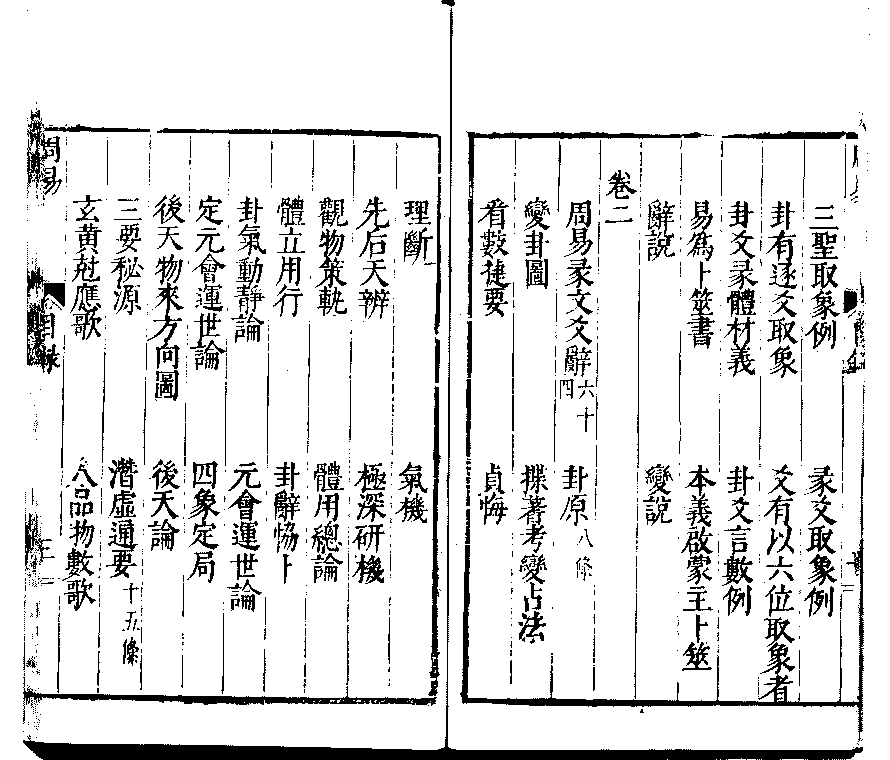 三聖取象例　彖爻取象例
卦有逐爻取象　爻有以六位取象者
卦爻彖體材義　卦爻言數例
易為卜筮書　本義啟蒙主卜筮
辭說　變說
卷二
周易彖文爻辭六十四　卦原八條
變卦圖　揲蓍考變占法
看數捷要　貞悔
理斷　氣機
先后天辨　極深研機
觀物策軌　體用總論
體立用行　卦辭恊卜
卦氣動靜論　元會運世論
定元會運世論　四象定局
後天物來方向圖　後天論
三要秘源　潛虛通要十五條
玄黃尅應歌　八品物數歌
周易　目錄